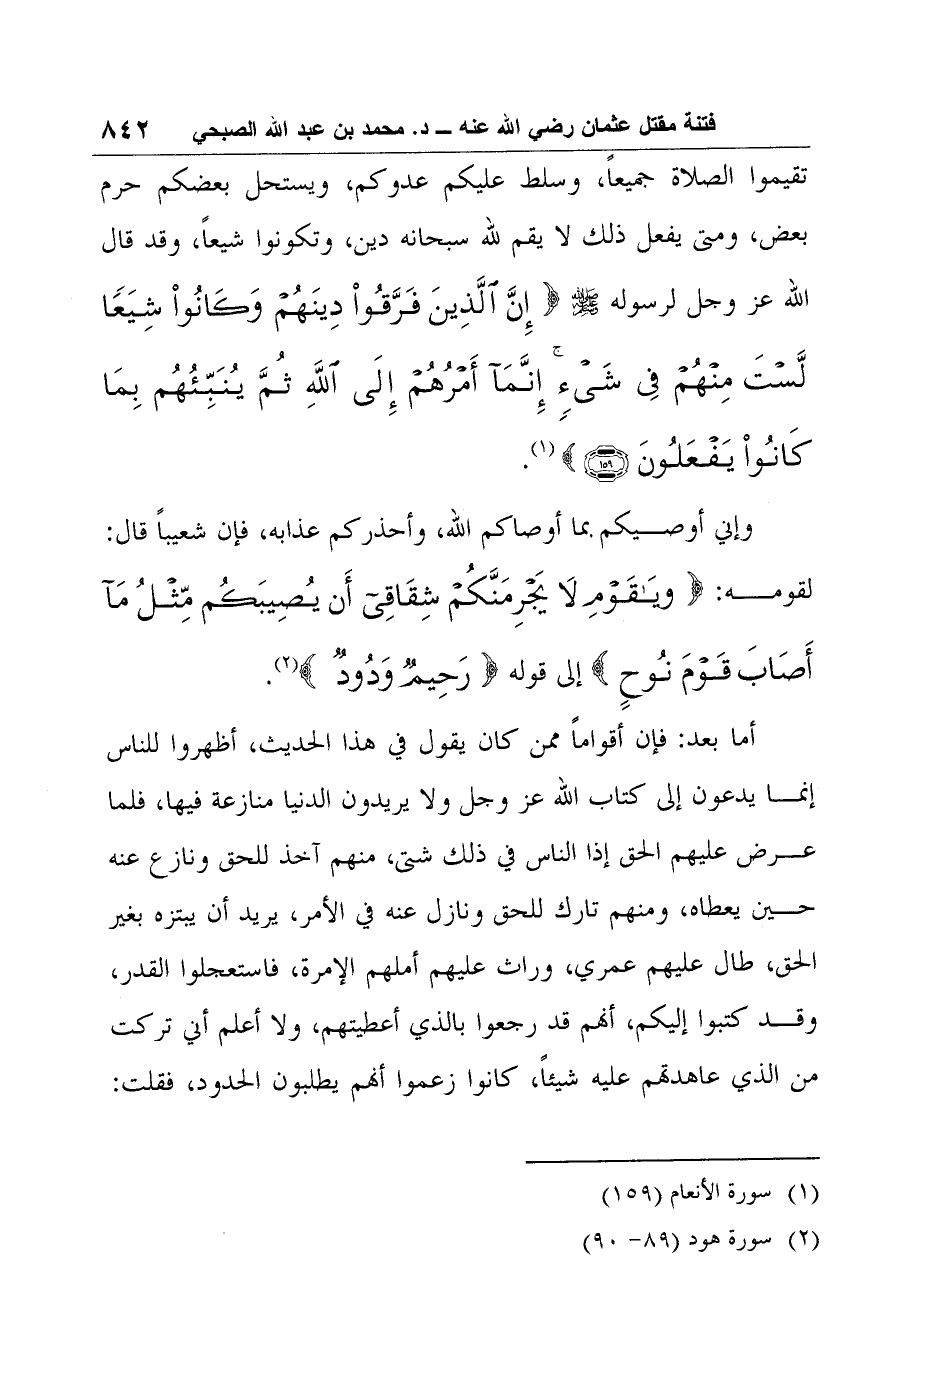 فتنة مقتل عثمان رضي الله عنه ــ د. محمد بن عبد الله الصبحي ٨٤٢
تقيموا الصلاة جميعاً، وسلط عليكم عدوكم، ويستحل بعضكم حرم
بعض، ومتى يفعل ذلك لا يقم لله سبحانه دين، وتكونوا شيعاً، وقد قال
الله عز وجل لرسوله ﷺ ﴿ إِنَّ ٱلَّذِينَ فَرَّقُوا۟ دِينَهُمْ وَكَانُوا۟ شِيَعًا
لَّسْتَ مِنْهُمْ فِى شَىْءٍ ۚ إِنَّمَآ أَمْرُهُمْ إِلَى ٱللَّهِ ثُمَّ يُنَبِّئُهُم بِمَا
كَانُوا۟ يَفْعَلُونَ ١٥٩ ﴾(١).
وإني أوصيكم بما أوصاكم الله، وأحذركم عذابه، فإن شعيباً قال:
لقومــه: ﴿ وَيَـٰقَوْمِ لَا يَجْرِمَنَّكُمْ شِقَاقِىٓ أَن يُصِيبَكُم مِّثْلُ مَآ
أَصَابَ قَوْمَ نُوحٍ ﴾ إلى قوله ﴿ رَحِيمٌ وَدُودٌ ﴾(٢).
أما بعد: فإن أقواماً ممن كان يقول في هذا الحديث، أظهروا للناس
إنما يدعون إلى كتاب الله عز وجل ولا يريدون الدنيا منازعة فيها، فلما
عرض عليهم الحق إذا الناس في ذلك شتى، منهم آخذ للحق ونازع عنه
حين يعطاه، ومنهم تارك للحق ونازل عنه في الأمر، يريد أن يبتزه بغير
الحق، طال عليهم عمري، وراث عليهم أملهم الإمرة، فاستعجلوا القدر،
وقد كتبوا إليكم، أنهم قد رجعوا بالذي أعطيتهم، ولا أعلم أني تركت
من الذي عاهدتهم عليه شيئاً، كانوا زعموا أنهم يطلبون الحدود، فقلت:
(١) سورة الأنعام (١٥٩)
(٢) سورة هود (٨٩- ٩٠)